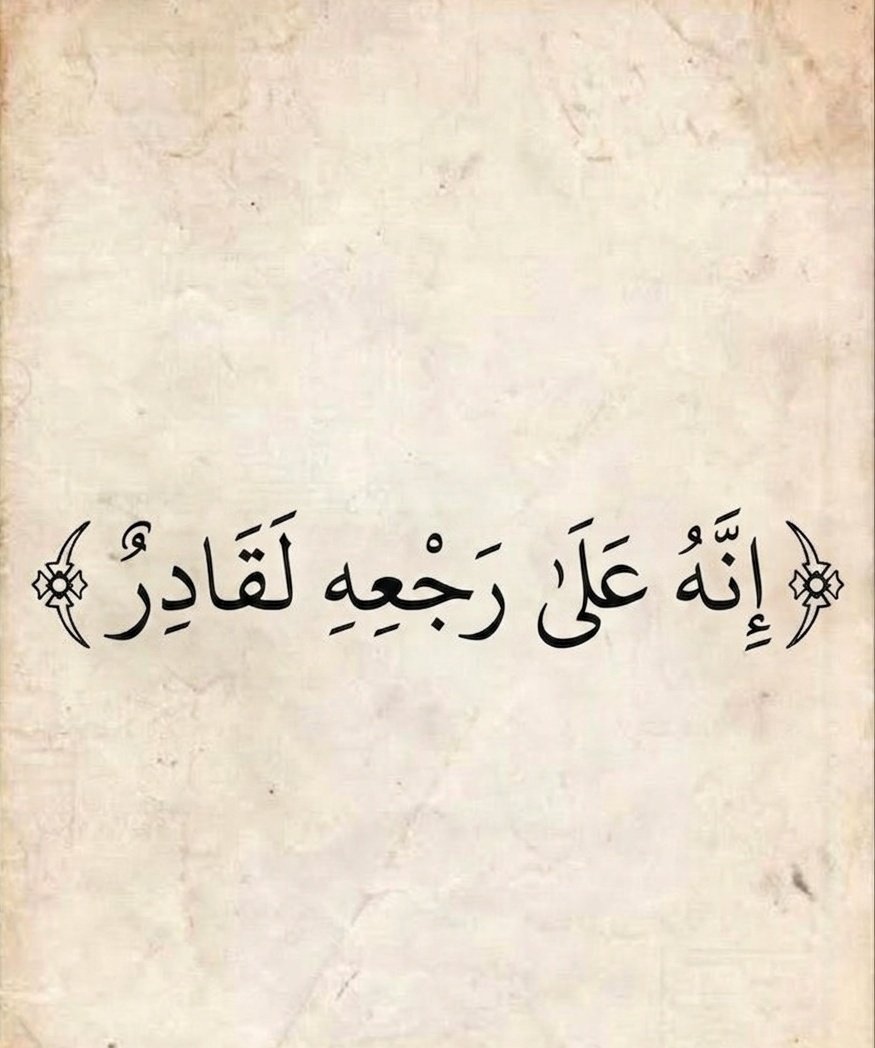 ﴿إِنَّهُ عَلَىٰ رَجْعِهِ لَقَادِرٌ﴾